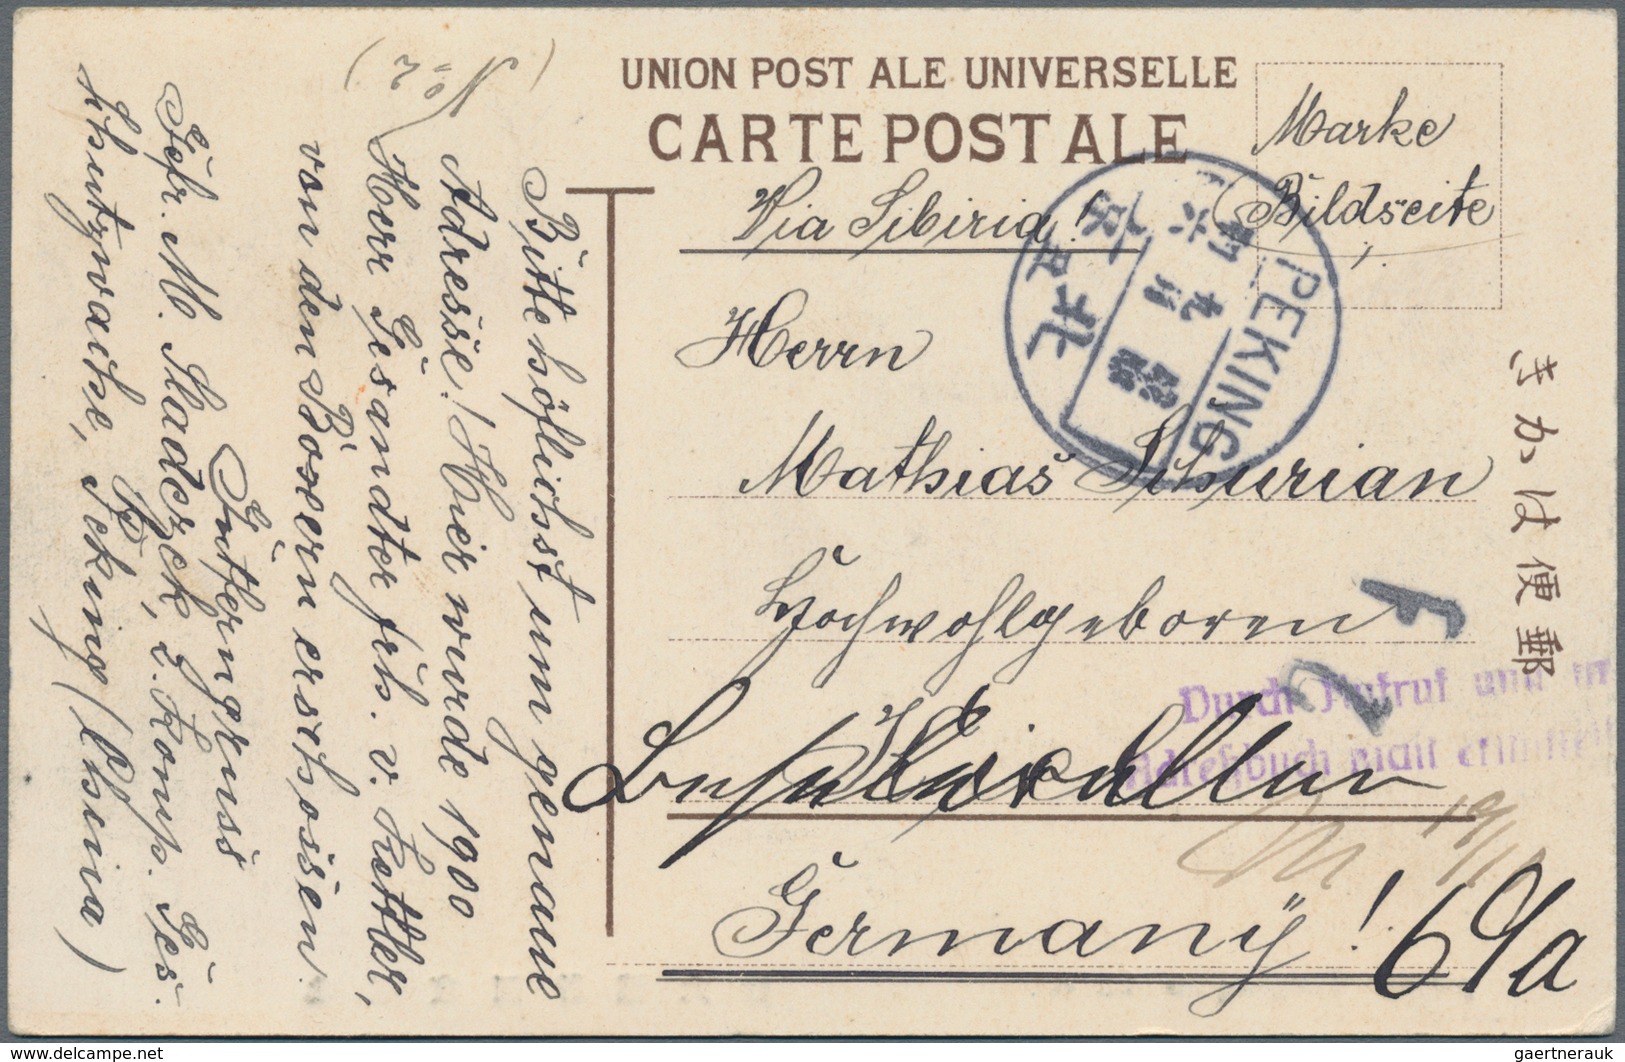 UNION POSTALE UNIVERSELLE
CARTE POSTALE
Marke
Bildseite
Via Sibiria!
PEKING
北
Herrn
Mathias Schurian
Hochwohlgeboren
Germany!
6 9/a
Durch Aufruf und
Adreßbuch nicht ermittelt
19/11
きかは便郵
(No 2)
Bitte höflichst um genaue
Adresse! Hier wurde 1900
Herr Gesandter frh. v. Kettler,
von den Boxern erschossen.
Gefr. M. Sladezek, 2. Komp. Ges.
Schutzwache, Peking (China)
delcampe.net
gaertnerauk